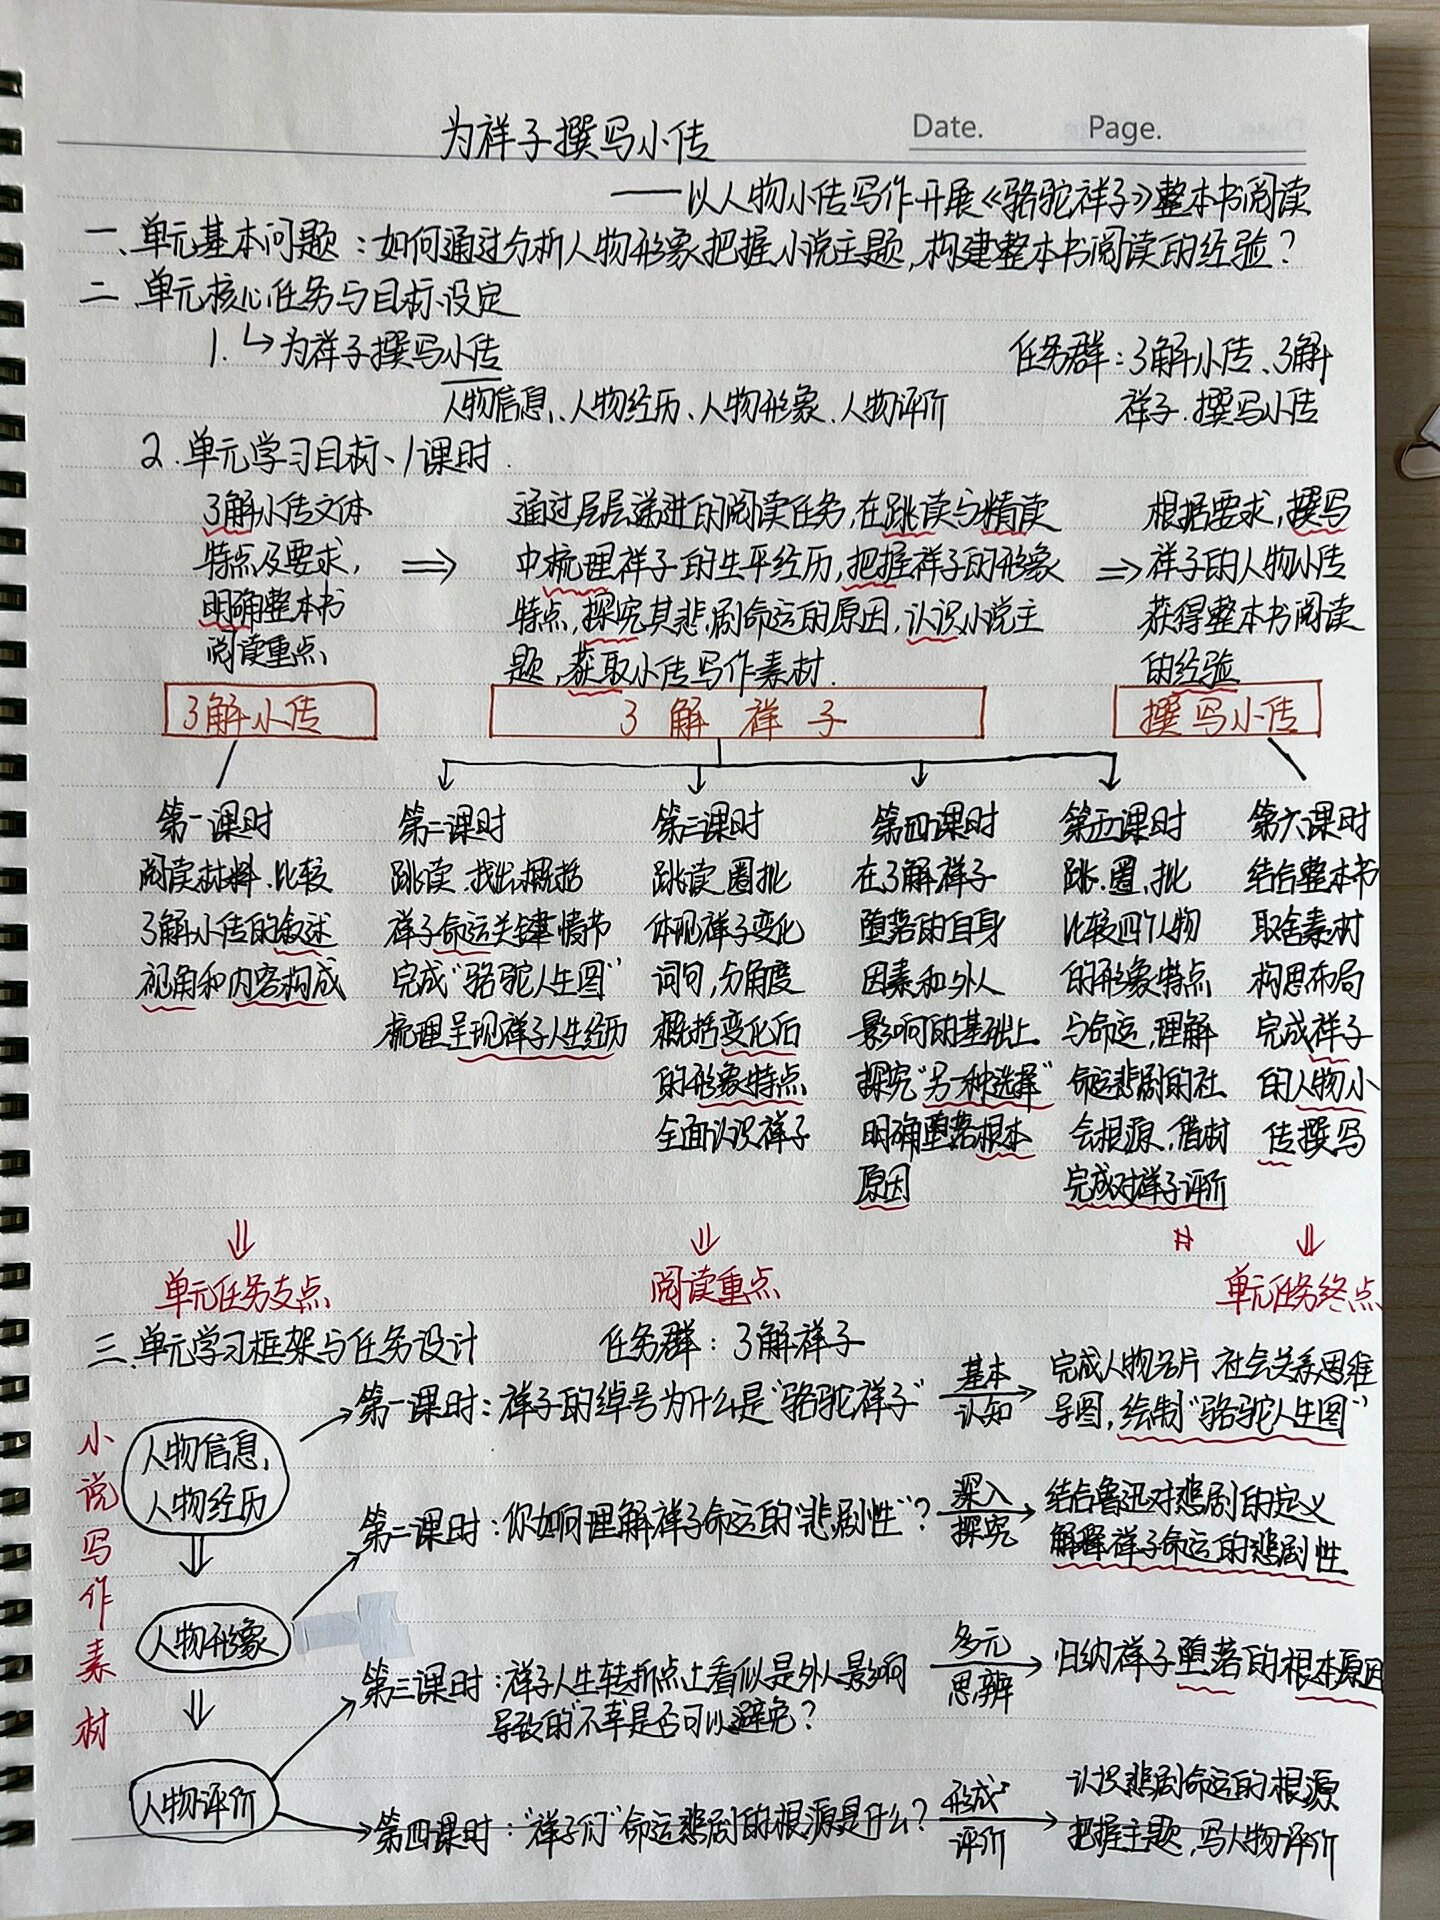 Date. Page.
为祥子撰写小传
——以人物小传写作开展《骆驼祥子》整本书阅读
一、单元基本问题：如何通过分析人物形象把握小说主题，构建整本书阅读的经验？
二、单元核心任务与目标设定
1.↳为祥子撰写小传
人物信息、人物经历、人物形象、人物评价
任务群：了解小传、了解
祥子、撰写小传
2.单元学习目标、1课时.
了解小传文体
特点及要求，
明确整本书
阅读重点、
⇒
通过层层递进的阅读任务，在跳读与精读
中梳理祥子的生平经历，把握祥子的形象
特点，探究其悲剧命运的原因，认识小说主
题，获取小传写作素材.
⇒
根据要求，撰写
祥子的人物小传
获得整本书阅读
的经验
了解小传
了解祥子
撰写小传
第一课时
阅读材料、比较
了解小传的叙述
视角和内容构成
第二课时
跳读、找出概括
祥子命运关键情节
完成“骆驼人生图”
梳理呈现祥子人生经历
第三课时
跳读、圈批
体现祥子变化
词句，分角度
概括变化后
的形象特点
全面认识祥子
第四课时
在了解祥子
堕落的自身
因素和外人
影响的基础上
探究“另一种选择”
明确堕落根本
原因
第五课时
跳、圈、批
比较四个人物
的形象特点
与命运，理解
命运悲剧的社
会根源，借材
完成对祥子评价
第六课时
结合整本书
取舍素材
构思布局
完成祥子
的人物小
传撰写
单元任务支点
阅读重点
单元任务终点
三、单元学习框架与任务设计 任务群：了解祥子
小说写作素材
人物信息、
人物经历
人物形象
人物评价
第一课时：祥子的绰号为什么是“骆驼祥子”
基本
认知
完成人物名片、社会关系思维
导图，绘制“骆驼人生图”
第二课时：你如何理解祥子命运的“悲剧性”？
深入
探究
结合鲁迅对悲剧的定义
解释祥子命运的悲剧性
第三课时：祥子人生转折点上看似是外人影响
导致的“不幸”是否可以避免？
多元
思辨
归纳祥子堕落的根本原因
第四课时：“祥子们”命运悲剧的根源是什么？
形成
评价
认识悲剧命运的根源
把握主题，写人物评价